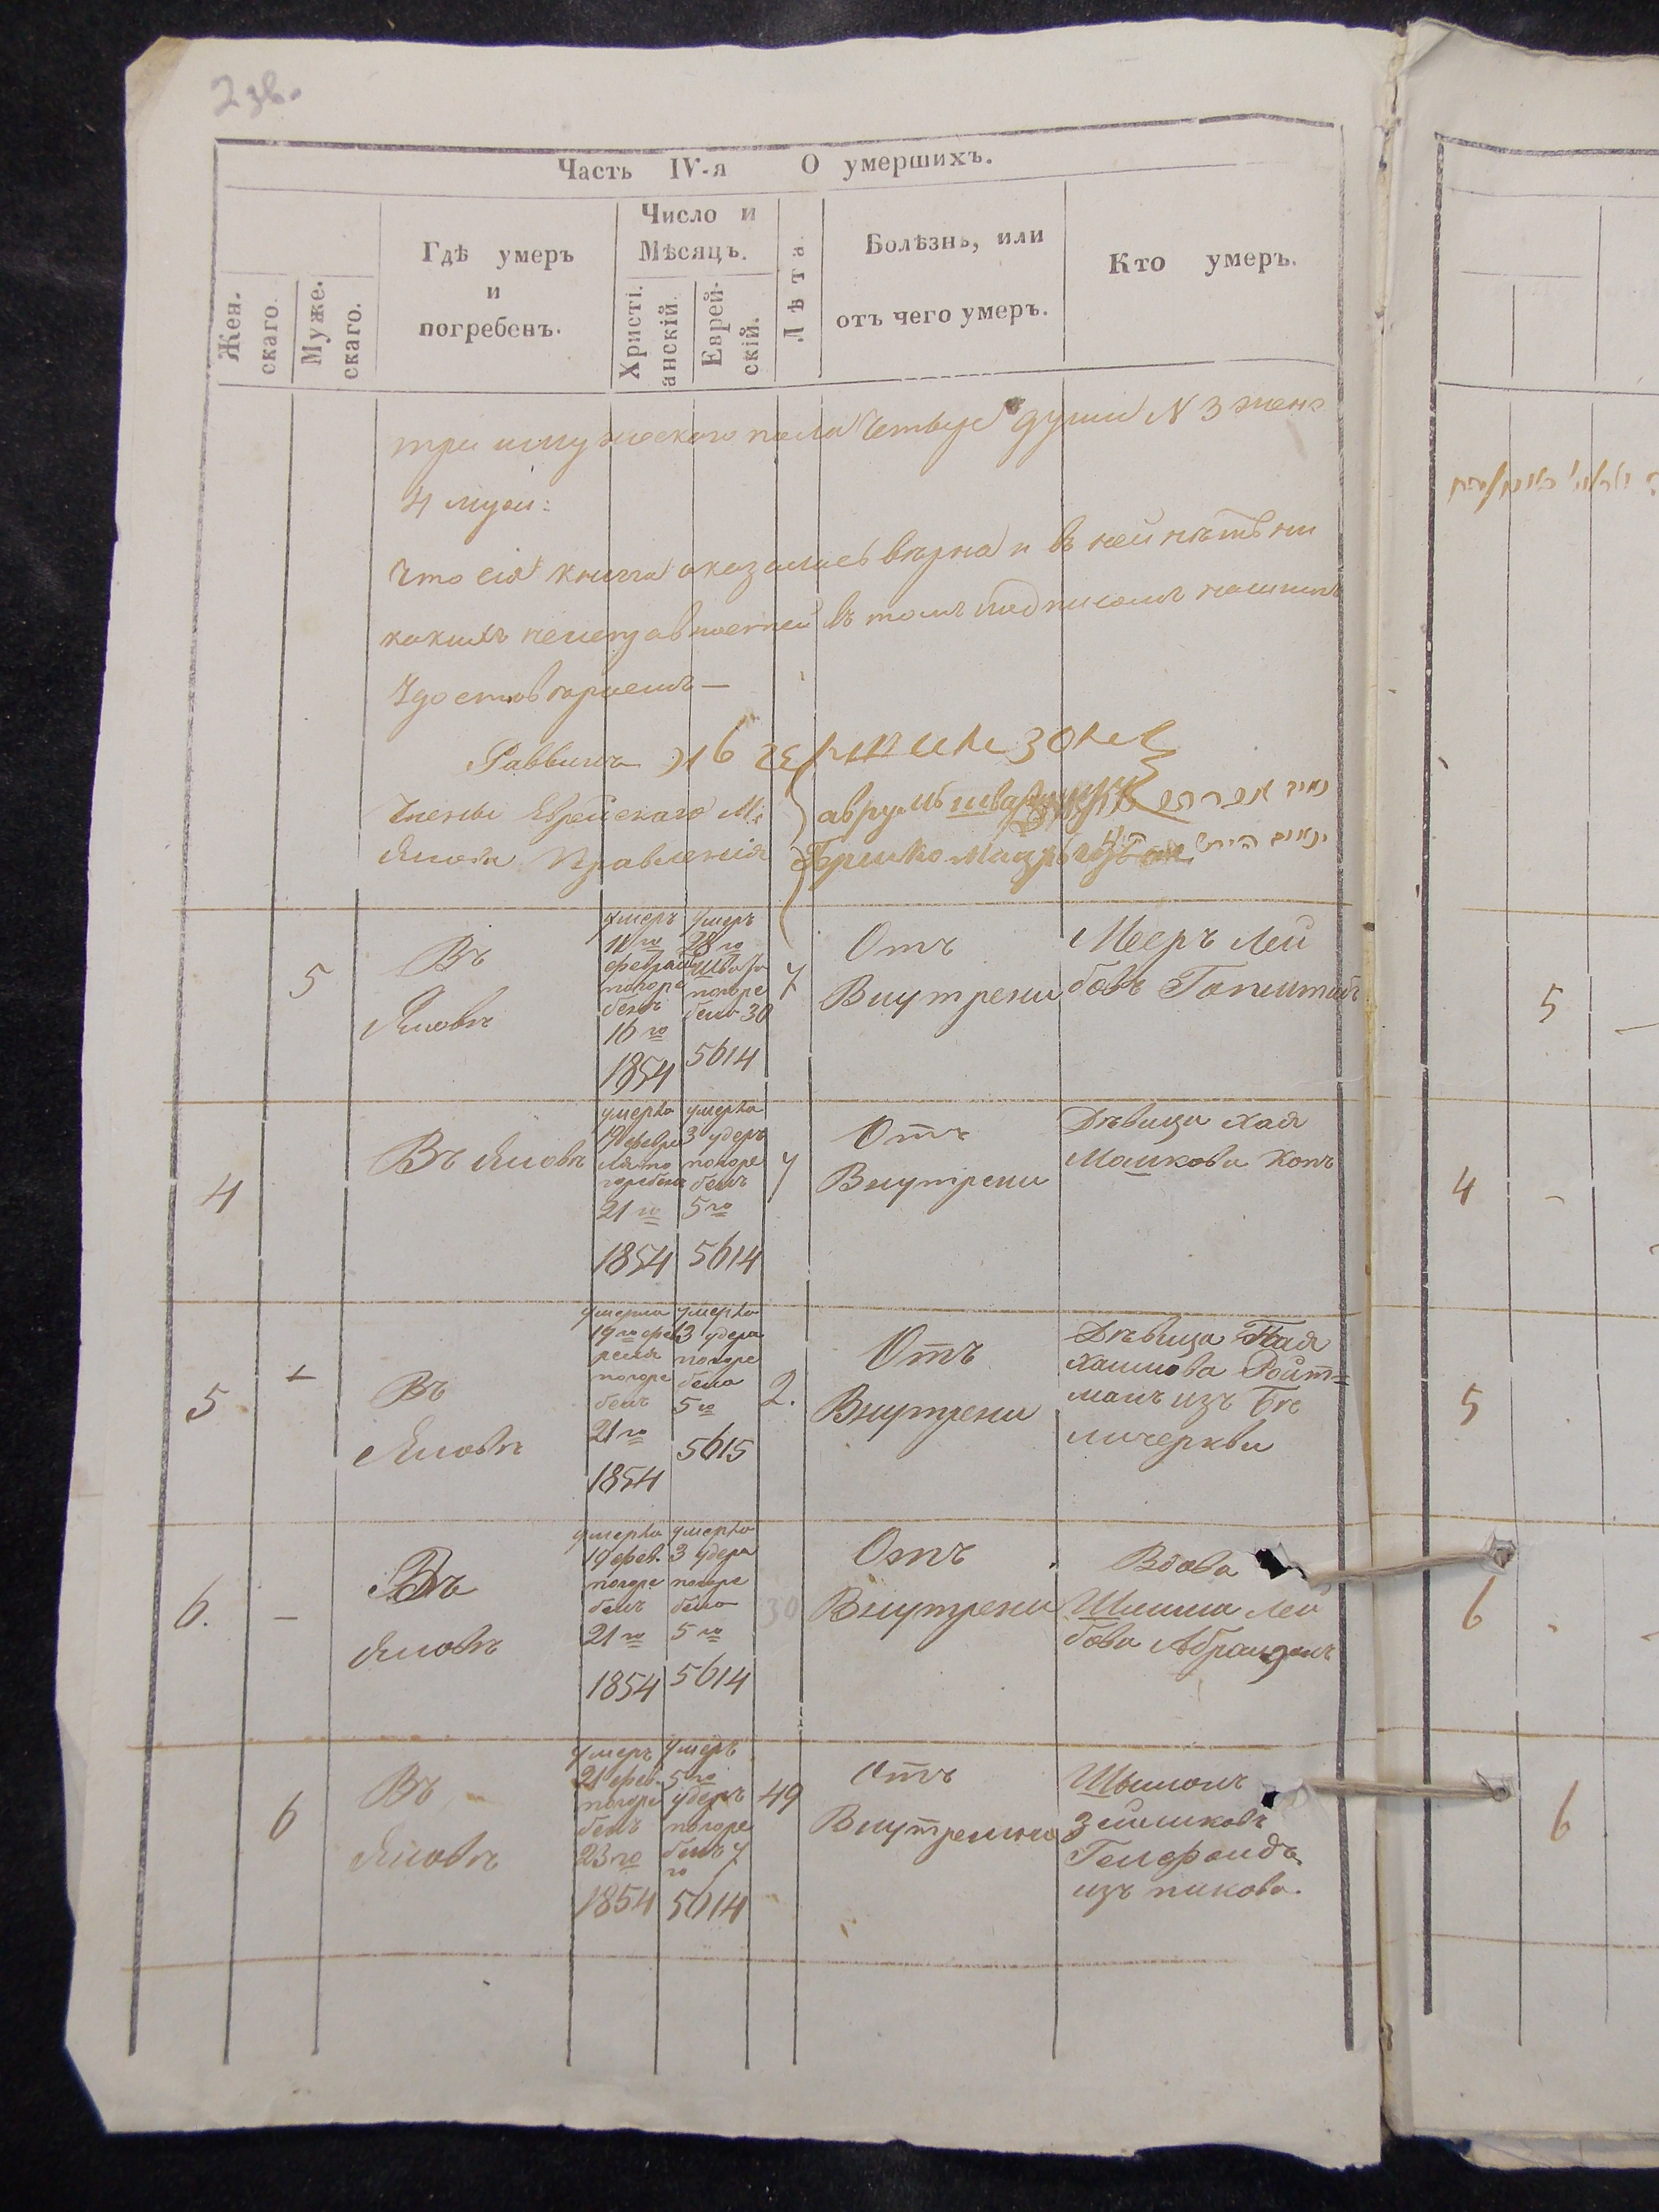 2 зв.
Часть IV-я О умершихъ.
Жен.
скаго.
Муже.
скаго.
Гдѣ умеръ
и
погребенъ.
Число и
Мѣсяцъ.
Христі.
анскій.
Еврей-
скій.
Лѣта.
Болѣзнь, или
отъ чего умеръ.
Кто умеръ.
три мужескаго пола четыре души N 3 жен:
4 муж:
Что сія книга оказалась вѣрна и въ ней нѣтъ ни
какихъ неисправностей въ томъ подписомъ нашимъ
Удостовѣряемъ —
Раввинъ
Члены Еврейскаго М:
Янова Правленія
Гершко
5
Въ
Яновѣ
умеръ
18 го
февраля
погре
бенъ
16 го
1854
умеръ
28 го
Шватъ
погре
бенъ 30
5614
7
Отъ
Внутрени
Мееръ Лей
бовъ
5
4
Въ Яновѣ
умерла
19 февра
ля по
гребена
21 го
1854
умерла
3 удеръ
погре
бенъ
5 го
5614
7
Отъ
Внутрени
Дѣвица Хая
Машкова
4
5
+
Въ
Яновѣ
умерла
19 го фев
погре
бенъ
21 го
1854
умерла
3 удера
погре
бена
5 го
5615
2.
Отъ
Внутрени
Дѣвица
Хаимова Ройт=
манъ изъ Бѣ
личеркви
5
6.
—
Въ
Яновѣ
умерла
19 фев.
погре
бенъ
21 го
1854
умерла
3 удера
погре
бена
5 го
5614
30
Отъ
Внутрени
Вдова
Лей
бова
6
6
Въ
Яновѣ
умеръ
21 фев.
погре
бенъ
23 го
1854
умеръ
5 го
удеръ
погре
бенъ 7
го
5614
49
Отъ
Внутрению
Шымонъ
Гелфандъ
изъ пикова.
6